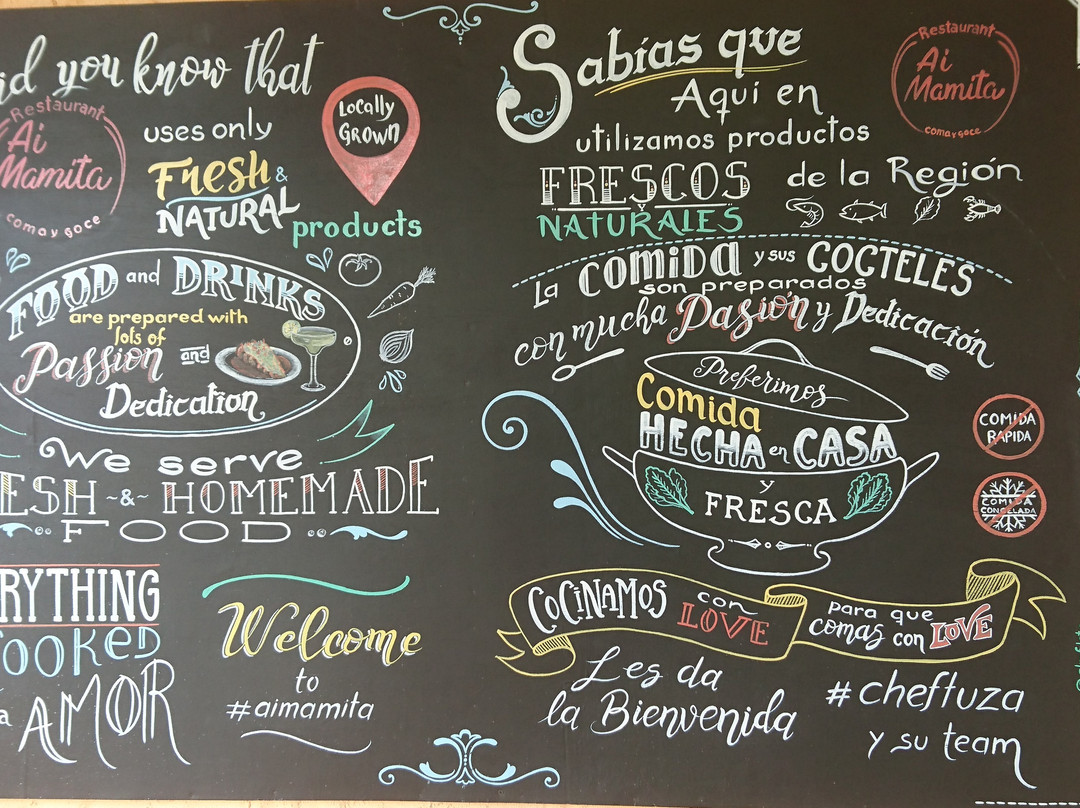 id you know that
Restaurant
Ai
Mamita
coma y goce
uses only
FRESH &
NATURAL
products
Locally
GROWN
FOOD and DRINKS
are prepared with
lots of
Passion and
Dedication
We serve
ESH -&- HOMEMADE
FOOD
RYTHING
OOKED
a AMOR
Welcome
to
#aimamita
Sabías que
Aquí en
Restaurant
Ai
Mamita
coma y goce
utilizamos productos
FRESCOS de la Región
NATURALES
La COMIDA y sus COCTELES
son preparados
con mucha Pasión y Dedicación
Preferimos
Comida
HECHA en CASA
y
FRESCA
COMIDA
RAPIDA
COMIDA
CONGELADA
COCINAMOS con LOVE
para que
comas con LOVE
Les da
la Bienvenida
#cheftuza
y su team